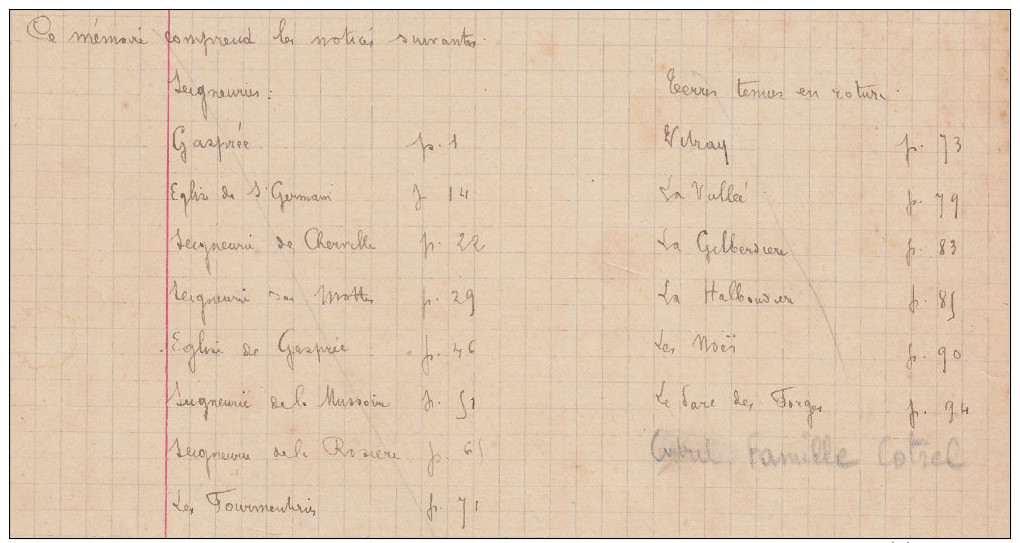 Ce mémoire comprend les notices suivantes.
Seigneuries :
Gasprée p. 1
Eglise de St Germain p 14
Seigneurie de Cherville p. 22
Seigneurie des Mottes p. 29
Eglise de Gasprée p. 46
Seigneurie de la p. 51
Seigneurie de la Rosiere p. 65
Les Fourmenteries p. 71
Terres tenues en roture.
Vitray p. 73
La Vallée p. 79
La Gilberdiere p. 83
La p. 85
Les Noës p. 90
Le Parc des Forges p. 94
Famille Cotrel